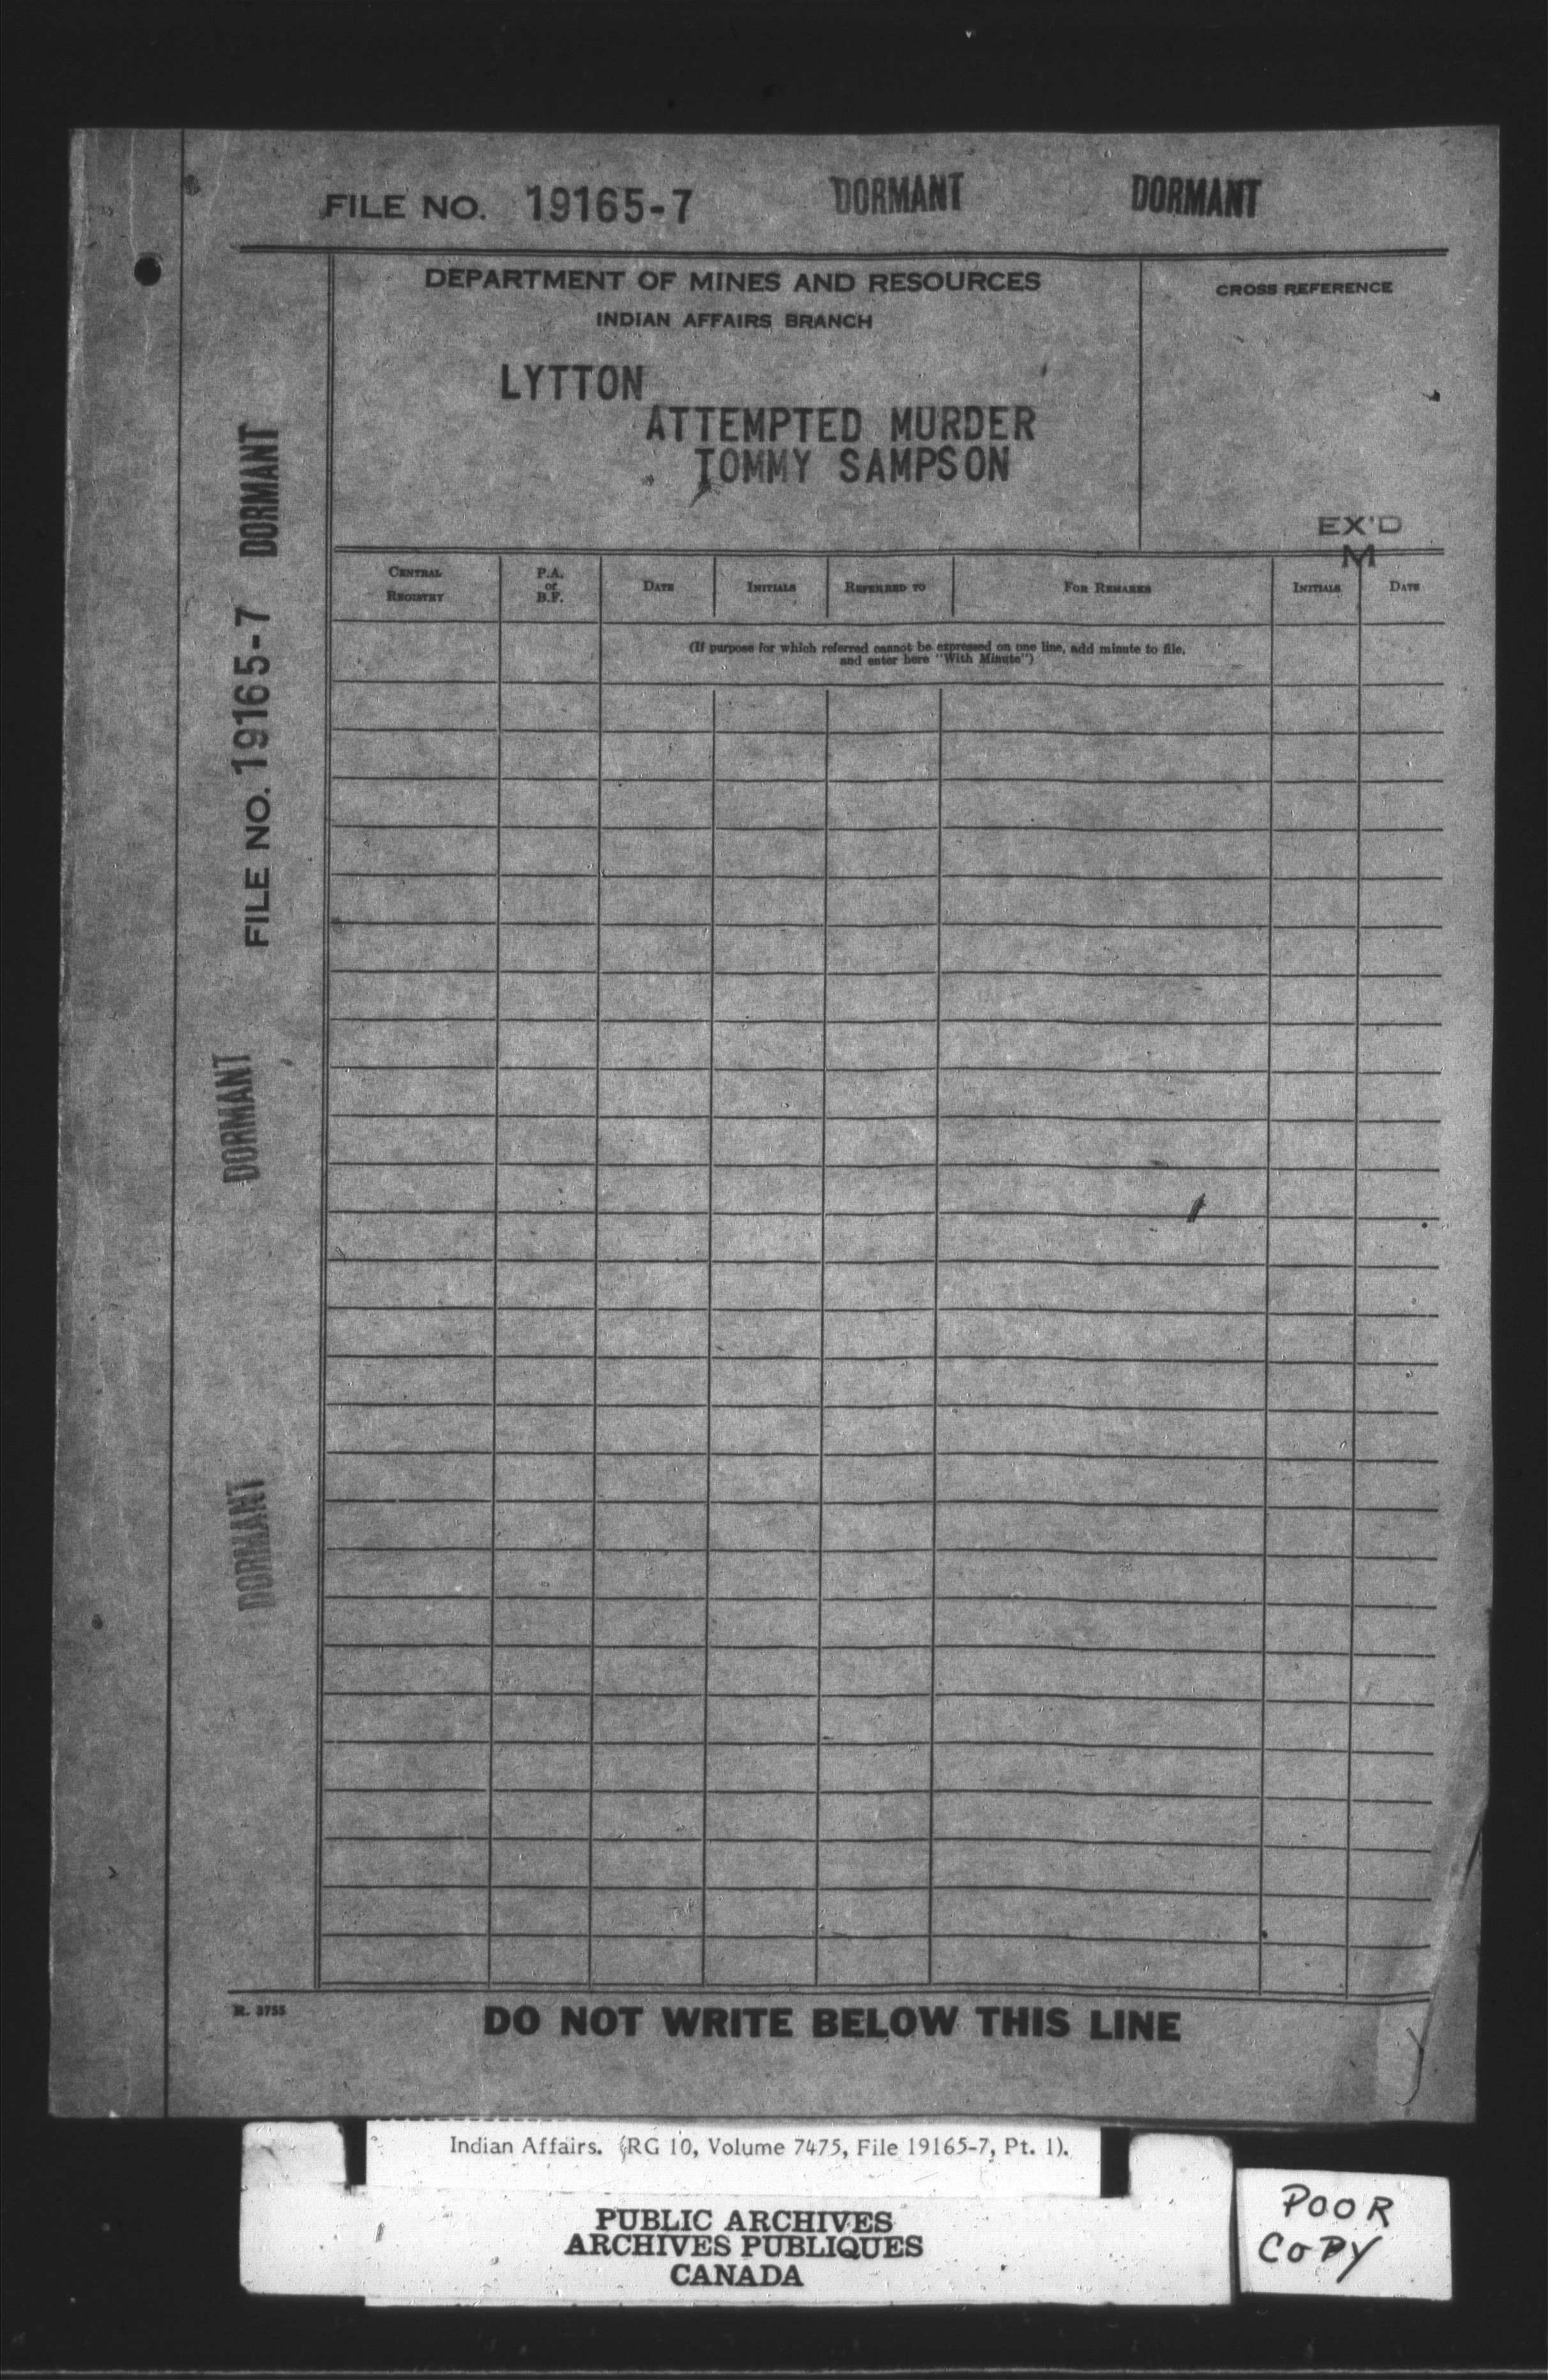 FILE NO. 19165-7 DORMANT DORMANT
DEPARTMENT OF MINES AND RESOURCES
INDIAN AFFAIRS BRANCH
CROSS REFERENCE
LYTTON
ATTEMPTED MURDER
TOMMY SAMPSON
EX'D
M
CENTRAL REGISTRY P.A. or B.F. DATE INITIALS REFERRED TO FOR REMARKS INITIALS DATE
(If purpose for which referred cannot be expressed on one line, add minute to file,
and enter here "With Minute")
FILE NO. 19165-7 DORMANT
DORMANT
DORMANT
R. 3755
DO NOT WRITE BELOW THIS LINE
Indian Affairs. (RG 10, Volume 7475, File 19165-7, Pt. 1).
PUBLIC ARCHIVES
ARCHIVES PUBLIQUES
CANADA
POOR
COPY